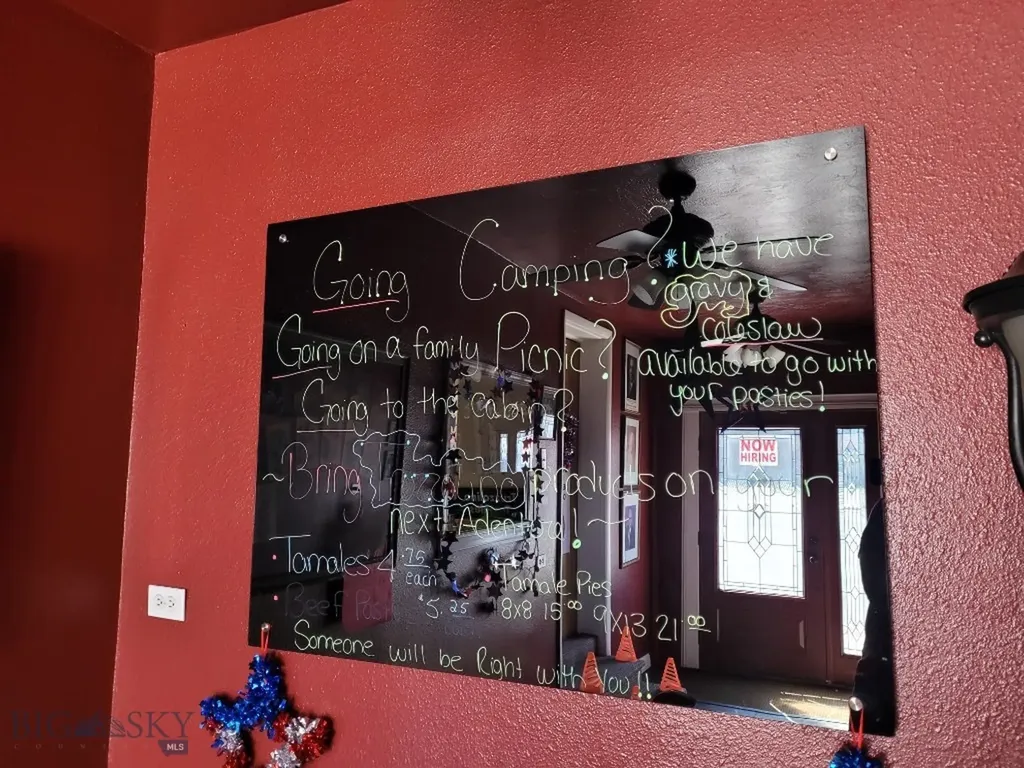 Going Camping?
Going on a family Picnic?
Going to the cabin?
~Bring products on your
next Adenture!~
• Tamales 4.75 each
• Beef $5.25
Tamale Pies
8x8 15.00 9x13 21.00
Someone will be Right with You!!
*We have
gravy &
coleslaw
available to go with
your pasties!
NOW
HIRING
BIG SKY
COUNTRY
MLS